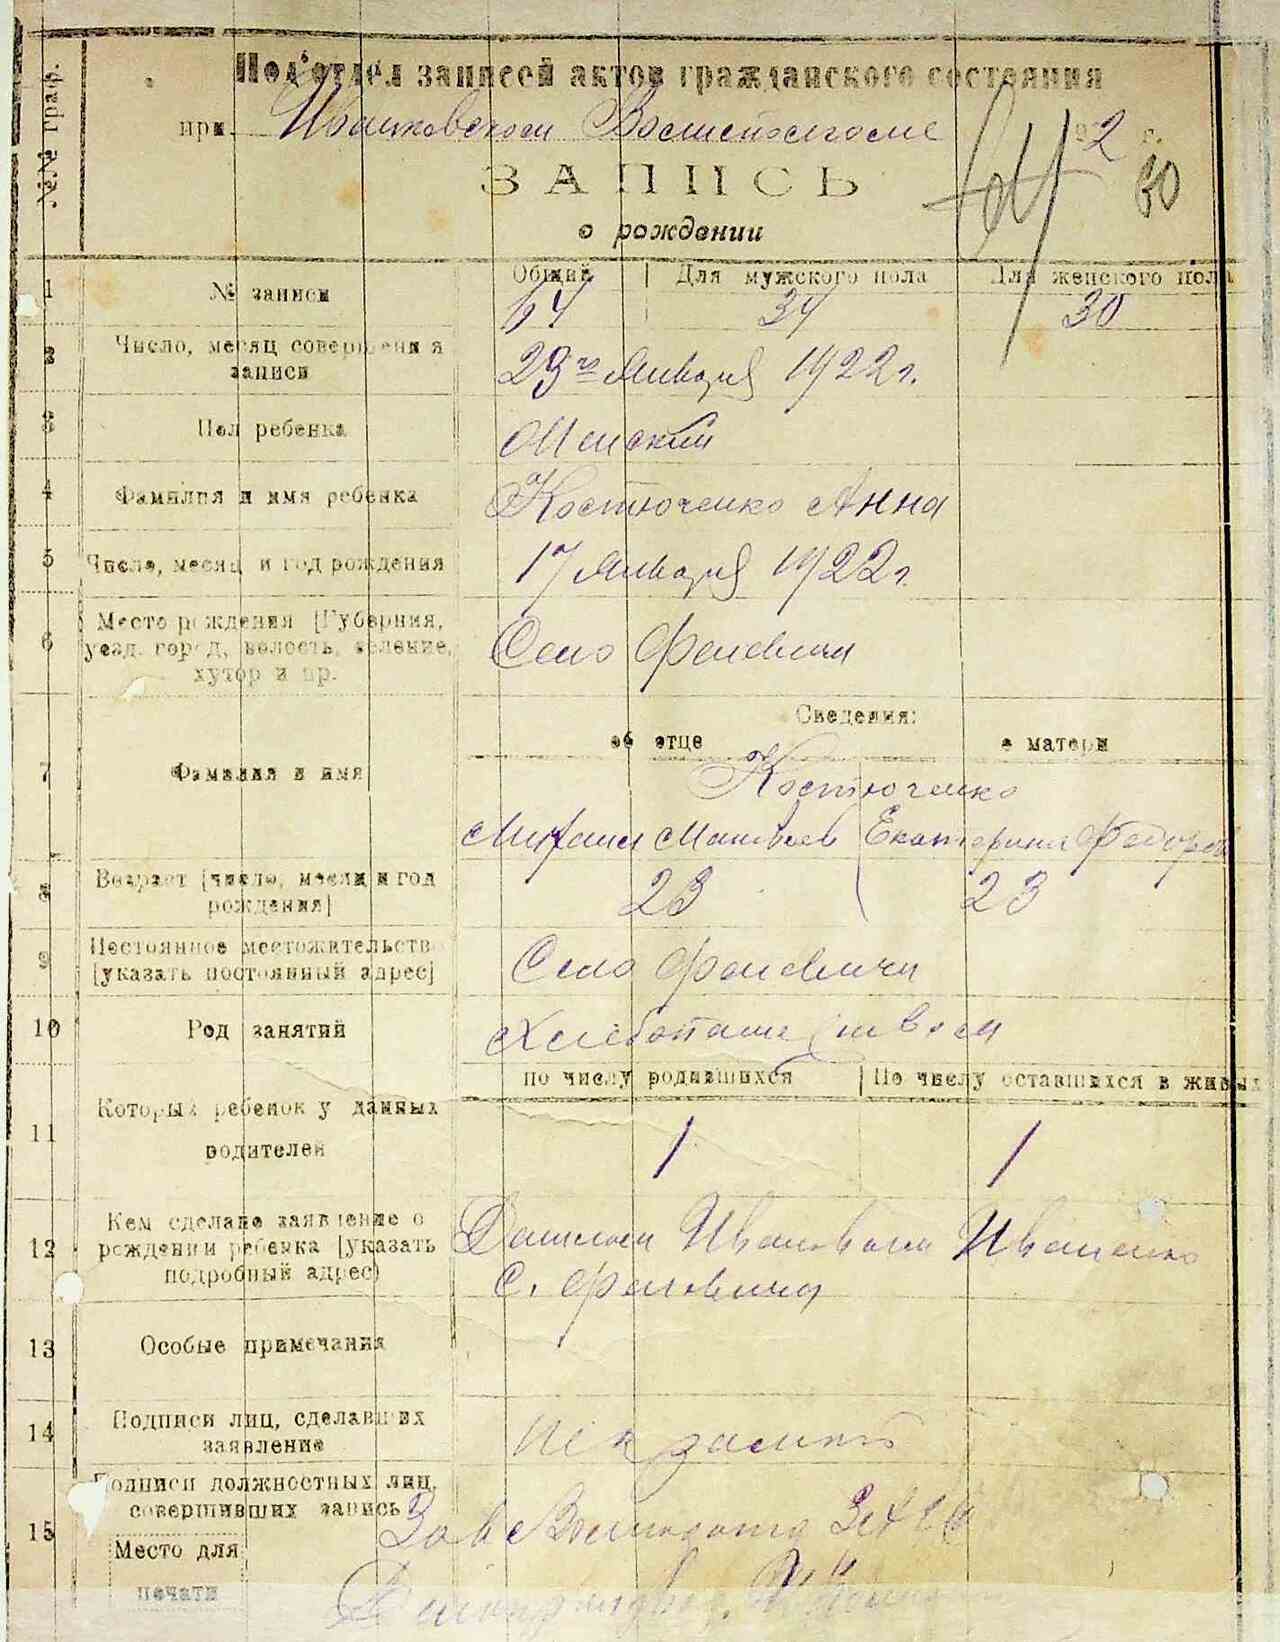 №№ граф.
Под'отдел записей актов гражданского состояния
при Ивашковском Волисполкоме 192 2 г.
30
ЗАПИСЬ
о рождении
Общий Для мужского пола Для женского пола
1 № записи 64 34 30
2 Число, месяц совершения записи 29го Января 1922 г.
3 Пол ребенка Женский
4 Фамилия и имя ребенка Костюченко Анна
5 Число, месяц и год рождения 17 Января 1922 г.
6 Место рождения [Губерния, уезд, город, волость, селение, хутор и пр. Село
Сведения:
об отце о матери
7 Фамилия и имя Костюченко
Михаил Матвеев Екатерина Федоров
8 Возраст [число, месяц и год рождения] 23 23
9 Постоянное местожительство [указать постоянный адрес] Село
10 Род занятий Хлебопашеством
по числу родившихся По числу оставшихся в живых
11 Которых ребенок у данных родителей 1 1
12 Кем сделано заявление о рождении ребенка [указать подробный адрес) Иваненко
С.
13 Особые примечания
14 Подписи лиц, сделавших заявление
15 Подписи должностных лиц, совершивших запись
Место для
печати